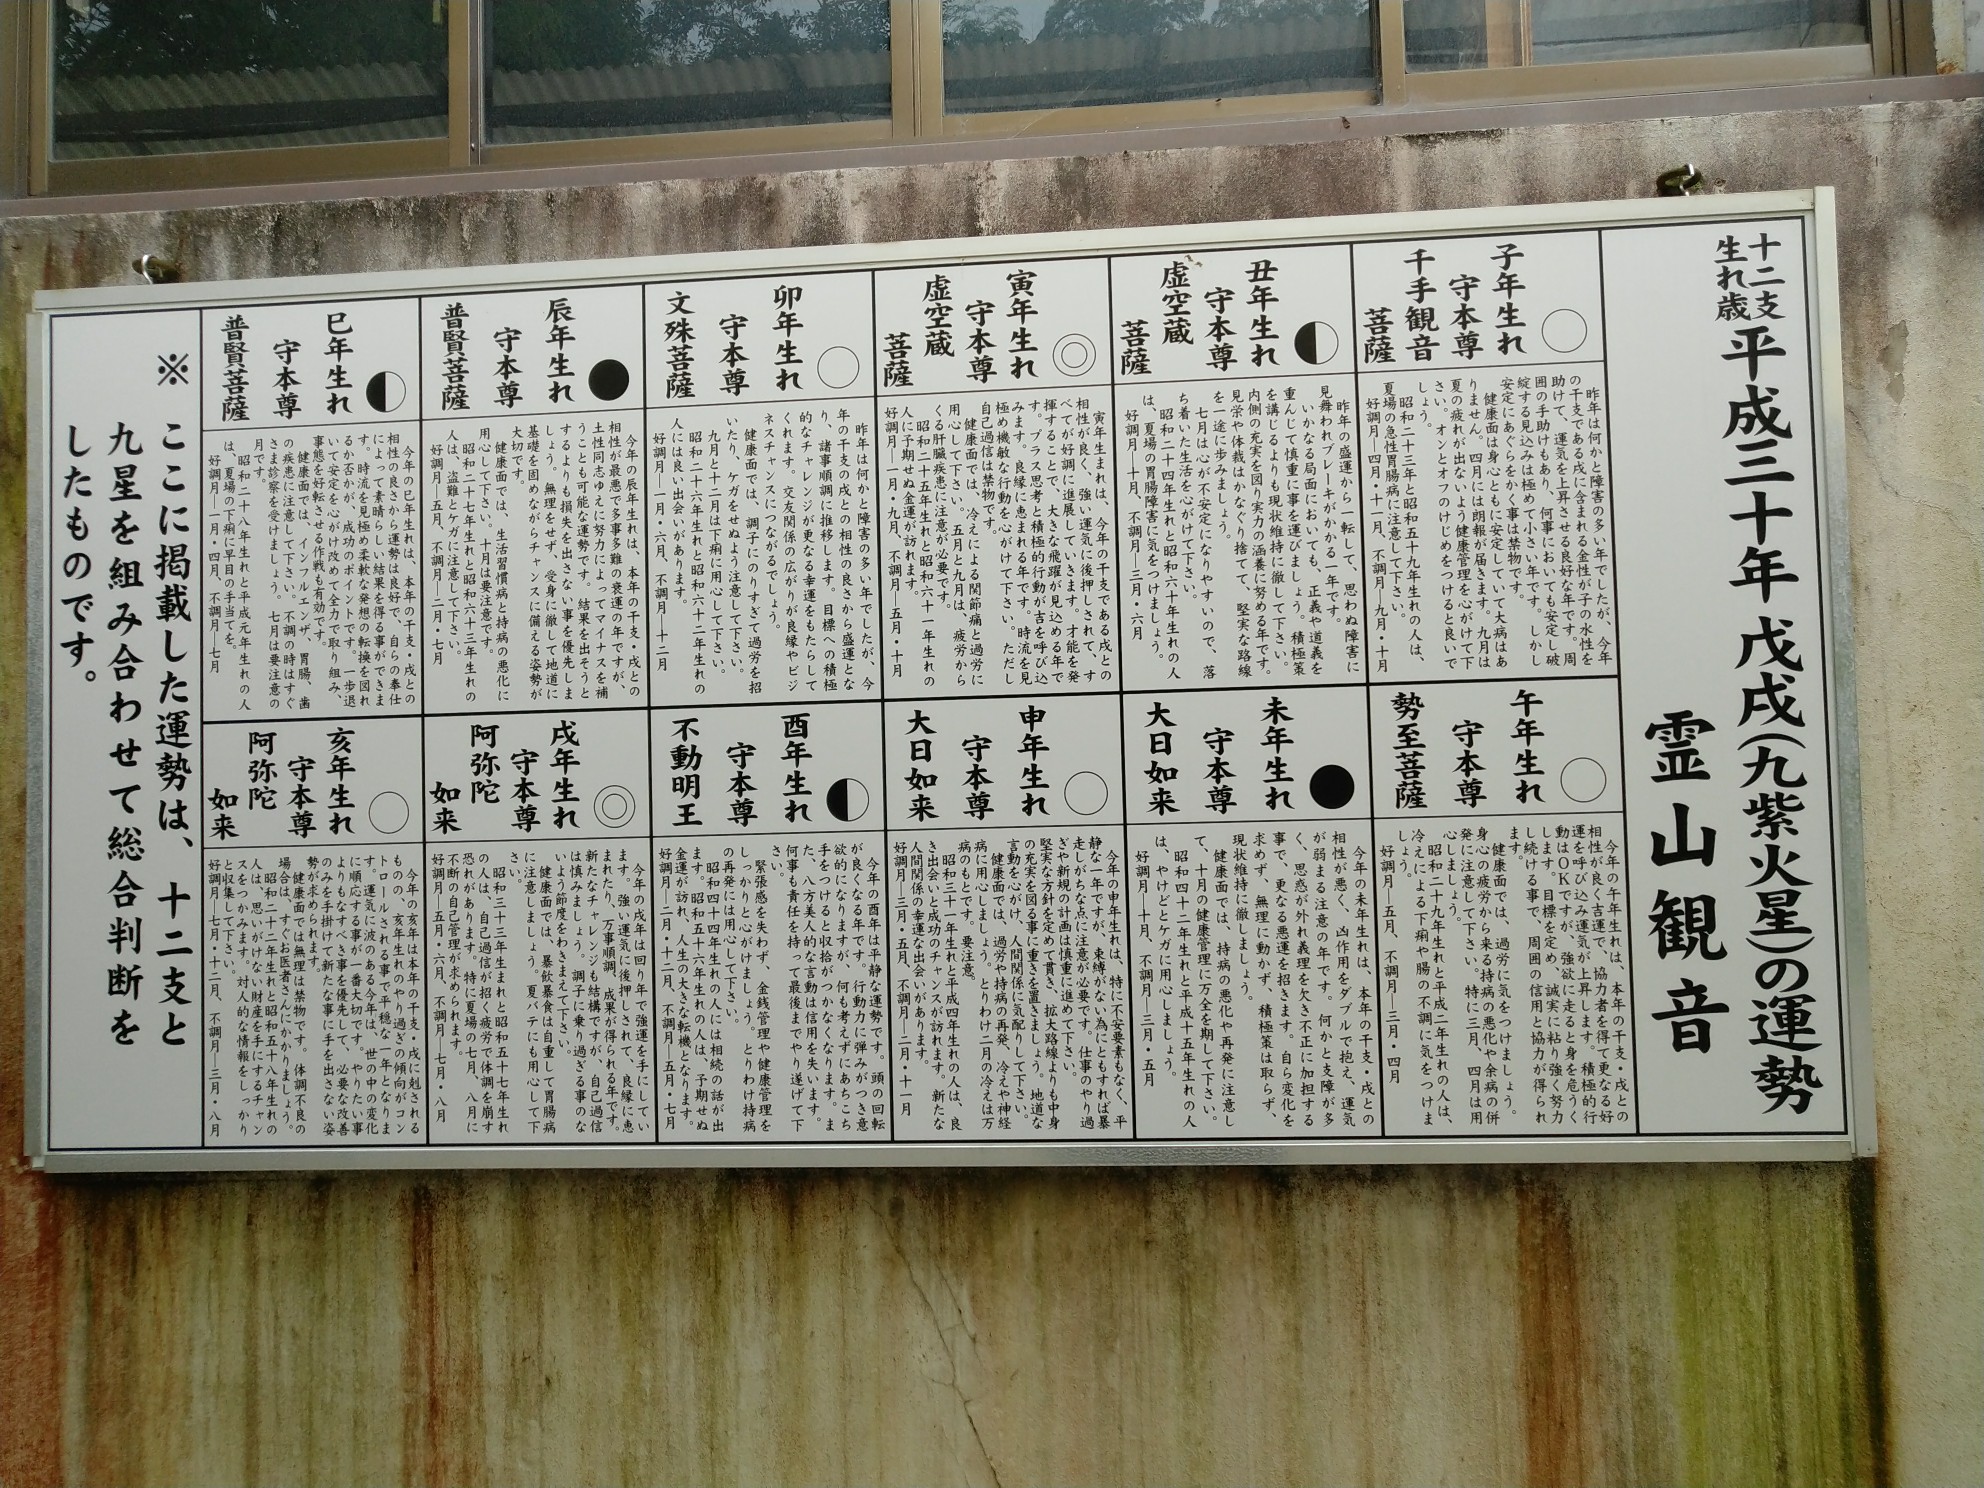 十二支
生れ歳
平成三十年 戊戌(九紫火星)の運勢
霊山観音
子年生れ
守本尊
千手観音
菩薩
昨年は何かと障害の多い年でしたが、今年
の干支である戌に含まれる金性が子の水性を
助けて、運気を上昇させる良好な年です。周
囲の手助けもあり、何事においても安定し破
綻する見込みは極めて小さい年です。しかし
安定にあぐらをかく事は禁物です。
健康面は身心ともに安定していて大病はあ
りません。四月には朗報が届きます。九月は
夏の疲れが出ないよう健康管理を心がけて下
さい。オンとオフのけじめをつけると良いで
しょう。
昭和二十三年と昭和五十九年生れの人は、
夏場の急性胃腸病に注意して下さい。
好調月―四月・十一月、不調月―九月・十月
丑年生れ
守本尊
虚空蔵
菩薩
昨年の盛運から一転して、思わぬ障害に
見舞われブレーキがかかる一年です。
いかなる局面においても、正義や道義を
重んじて慎重に事を運びましょう。積極策
を講じるよりも現状維持に徹して下さい。
内側の充実を図り実力の涵養に努める年です。
見栄や体裁はかなぐり捨てて、堅実な路線
を一途に歩みましょう。
七月は心が不安定になりやすいので、落
ち着いた生活を心がけて下さい。
昭和二十四年生れと昭和六十年生れの人
は、夏場の胃腸障害に気をつけましょう。
好調月―十月、不調月―三月・六月
寅年生れ
守本尊
虚空蔵
菩薩
寅年生まれは、今年の干支である戌との
相性が良く、強い運気に後押しされて、す
べてが好調に進展していきます。才能を発
揮することで、大きな飛躍が見込める年で
す。プラス思考と積極的行動が吉を呼び込
みます。良縁に恵まれる年です。時流を見
極め機敏な行動を心がけて下さい。ただし
自己過信は禁物です。
健康面では、冷えによる関節痛と過労に
用心して下さい。五月と九月は、疲労から
くる肝臓疾患に注意が必要です。
昭和二十五年生れと昭和六十一年生れの
人に予期せぬ金運が訪れます。
好調月―一月・九月、不調月―五月・十月
卯年生れ
守本尊
文殊菩薩
昨年は何かと障害の多い年でしたが、今
年の干支の戌との相性の良さから盛運とな
り、諸事順調に推移します。目標への積極
的なチャレンジが更なる幸運をもたらして
くれます。交友関係の広がりが良縁やビジ
ネスチャンスにつながるでしょう。
健康面では、調子にのりすぎて過労を招
いたり、ケガをせぬよう注意して下さい。
九月と十二月は下痢に用心して下さい。
昭和二十六年生れと昭和六十二年生れの
人には良い出会いがあります。
好調月―一月・六月、不調月―十二月
辰年生れ
守本尊
普賢菩薩
今年の辰年生れは、本年の干支・戌との
相性が最悪で多事多難の衰運の年ですが、
土性同志ゆえに努力によってマイナスを補
うことも可能な運勢です。結果を出そうと
するよりも損失を出さない事を優先しま
しょう。無理をせず、受身に徹して地道に
基礎を固めながらチャンスに備える姿勢が
大切です。
健康面では、生活習慣病と持病の悪化に
用心して下さい。十月は要注意です。
昭和二十七年生れと昭和六十三年生れの
人は、盗難とケガに注意して下さい。
好調月―五月、不調月―二月・七月
巳年生れ
守本尊
普賢菩薩
今年の巳年生れは、本年の干支・戌との
相性の良さから運勢は良好で、自らの奉仕
によって素晴らしい結果を得る事ができま
す。時流を見極め柔軟な発想の転換を図れ
るか否かが、成功のポイントです。一歩退
いて安定を心がけ改めて全力で取り組み、
事態を好転させる作戦も有効です。
健康面では、インフルエンザ、胃腸、歯
の疾患に注意して下さい。不調の時はすぐ
さま診察を受けましょう。七月は要注意の
月です。
昭和二十八年生れと平成元年生れの人
は、夏場の下痢に早目の手当てを。
好調月―一月・四月、不調月―七月
午年生れ
守本尊
勢至菩薩
今年の午年生れは、本年の干支・戌との
相性が良く吉運で、協力者を得て更なる好
運を呼び込み運気が上昇します。積極的行
動はOKですが、強欲に走ると身を危うく
します。目標を定め、誠実に粘り強く努力
し続ける事で、周囲の信用と協力が得られ
ます。
健康面では、過労に気をつけましょう。
身心の疲労から来る持病の悪化や余病の併
発に注意して下さい。特に三月、四月は用
心しましょう。
昭和二十九年生れと平成二年生れの人は、
冷えによる下痢や腸の不調に気をつけま
しょう。
好調月―五月、不調月―三月・四月
未年生れ
守本尊
大日如来
今年の未年生れは、本年の干支・戌との
相性が悪く、凶作用をダブルで抱え、運気
が弱まる注意の年です。何かと支障が多
く、思惑が外れ義理を欠き不正に加担する
事で、更なる悪運を招きます。自ら変化を
求めず、無理に動かず、積極策は取らず、
現状維持に徹しましょう。
健康面では、持病の悪化や再発に注意し
て、十月の健康管理に万全を期して下さい。
昭和四十二年生れと平成十五年生れの人
は、やけどとケガに用心しましょう。
好調月―十月、不調月―三月・五月
申年生れ
守本尊
大日如来
今年の申年生れは、特に不安要素もなく、平
静な一年ですが、束縛がない為にともすれば暴
走しがちな点に注意が必要です。仕事のやり過
ぎや新規の計画は慎重に進めて下さい。
堅実な方針を定めて貫き、拡大路線よりも中身
の充実を図る事に重きを置きましょう。地道な
言動を心がけ、人間関係に気配りして下さい。
健康面では、過労や持病の再発、冷えや神経
病に用心しましょう。とりわけ二月の冷えは万
病のもとです。要注意。
昭和三十一年生れと平成四年生れの人は、良
き出会いと成功のチャンスが訪れます。新たな
人間関係の幸運な出会いがあります。
好調月―三月・五月、不調月―二月・十一月
酉年生れ
守本尊
不動明王
今年の酉年は平静な運勢です。頭の回転
が良くなる年です。行動力に弾みがつき意
欲的になりますが、何も考えずにあちこち
手をつけると収拾がつかなくなります。ま
た、八方美人的な言動は信用を失います。
何事も責任を持って最後までやり遂げて下
さい。
緊張感を失わず、金銭管理や健康管理を
しっかりと心がけましょう。とりわけ持病
の再発には用心して下さい。
昭和四十四年生れの人には相続の話が出
ます。昭和五十六年生れの人は、予期せぬ
金運が訪れ、人生の大きな転機となります。
好調月―二月・十二月、不調月―七月
戌年生れ
守本尊
阿弥陀
如来
今年の戌年は回り年で強運を手にしてい
ます。強い運気に後押しされて、良縁に恵
まれたり、万事順調、成果が得られる年です。
新たなチャレンジも結構ですが、自己過信
は慎みましょう。調子に乗り過ぎる事のな
いよう節度をわきまえて下さい。
健康面では、暴飲暴食は自重して胃腸病
に注意しましょう。夏バテにも用心して下
さい。
昭和三十三年生まれと昭和五十七年生れ
の人は、自己過信が招く疲労で体調を崩す
恐れがあります。特に夏場の七月、八月に
不断の自己管理が求められます。
好調月―五月・六月、不調月―七月・八月
亥年生れ
守本尊
阿弥陀
如来
今年の亥年は本年の干支・戌に剋される
ものの、亥年生れのやり過ぎの傾向がコン
トロールされる事で平穏な一年となりま
す。運気に波のある今年は、世の中の変化
に順応する事が一番大切です。やりたい事
よりもなすべき事を優先して、必要な改善
のみを手掛けて新たな事に手を出さない姿
勢が求められます。
健康面では無理は禁物です。体調不良の
場合は、すぐお医者さんにかかりましょう。
昭和二十二年生れと昭和五十八年生れの
人は、思いがけない財産を手にするチャン
スをつかみます。対人的な情報をしっかり
と収集して下さい。
好調月―七月・十二月、不調月―三月・八月
※ ここに掲載した運勢は、十二支と
九星を組み合わせて総合判断を
したものです。